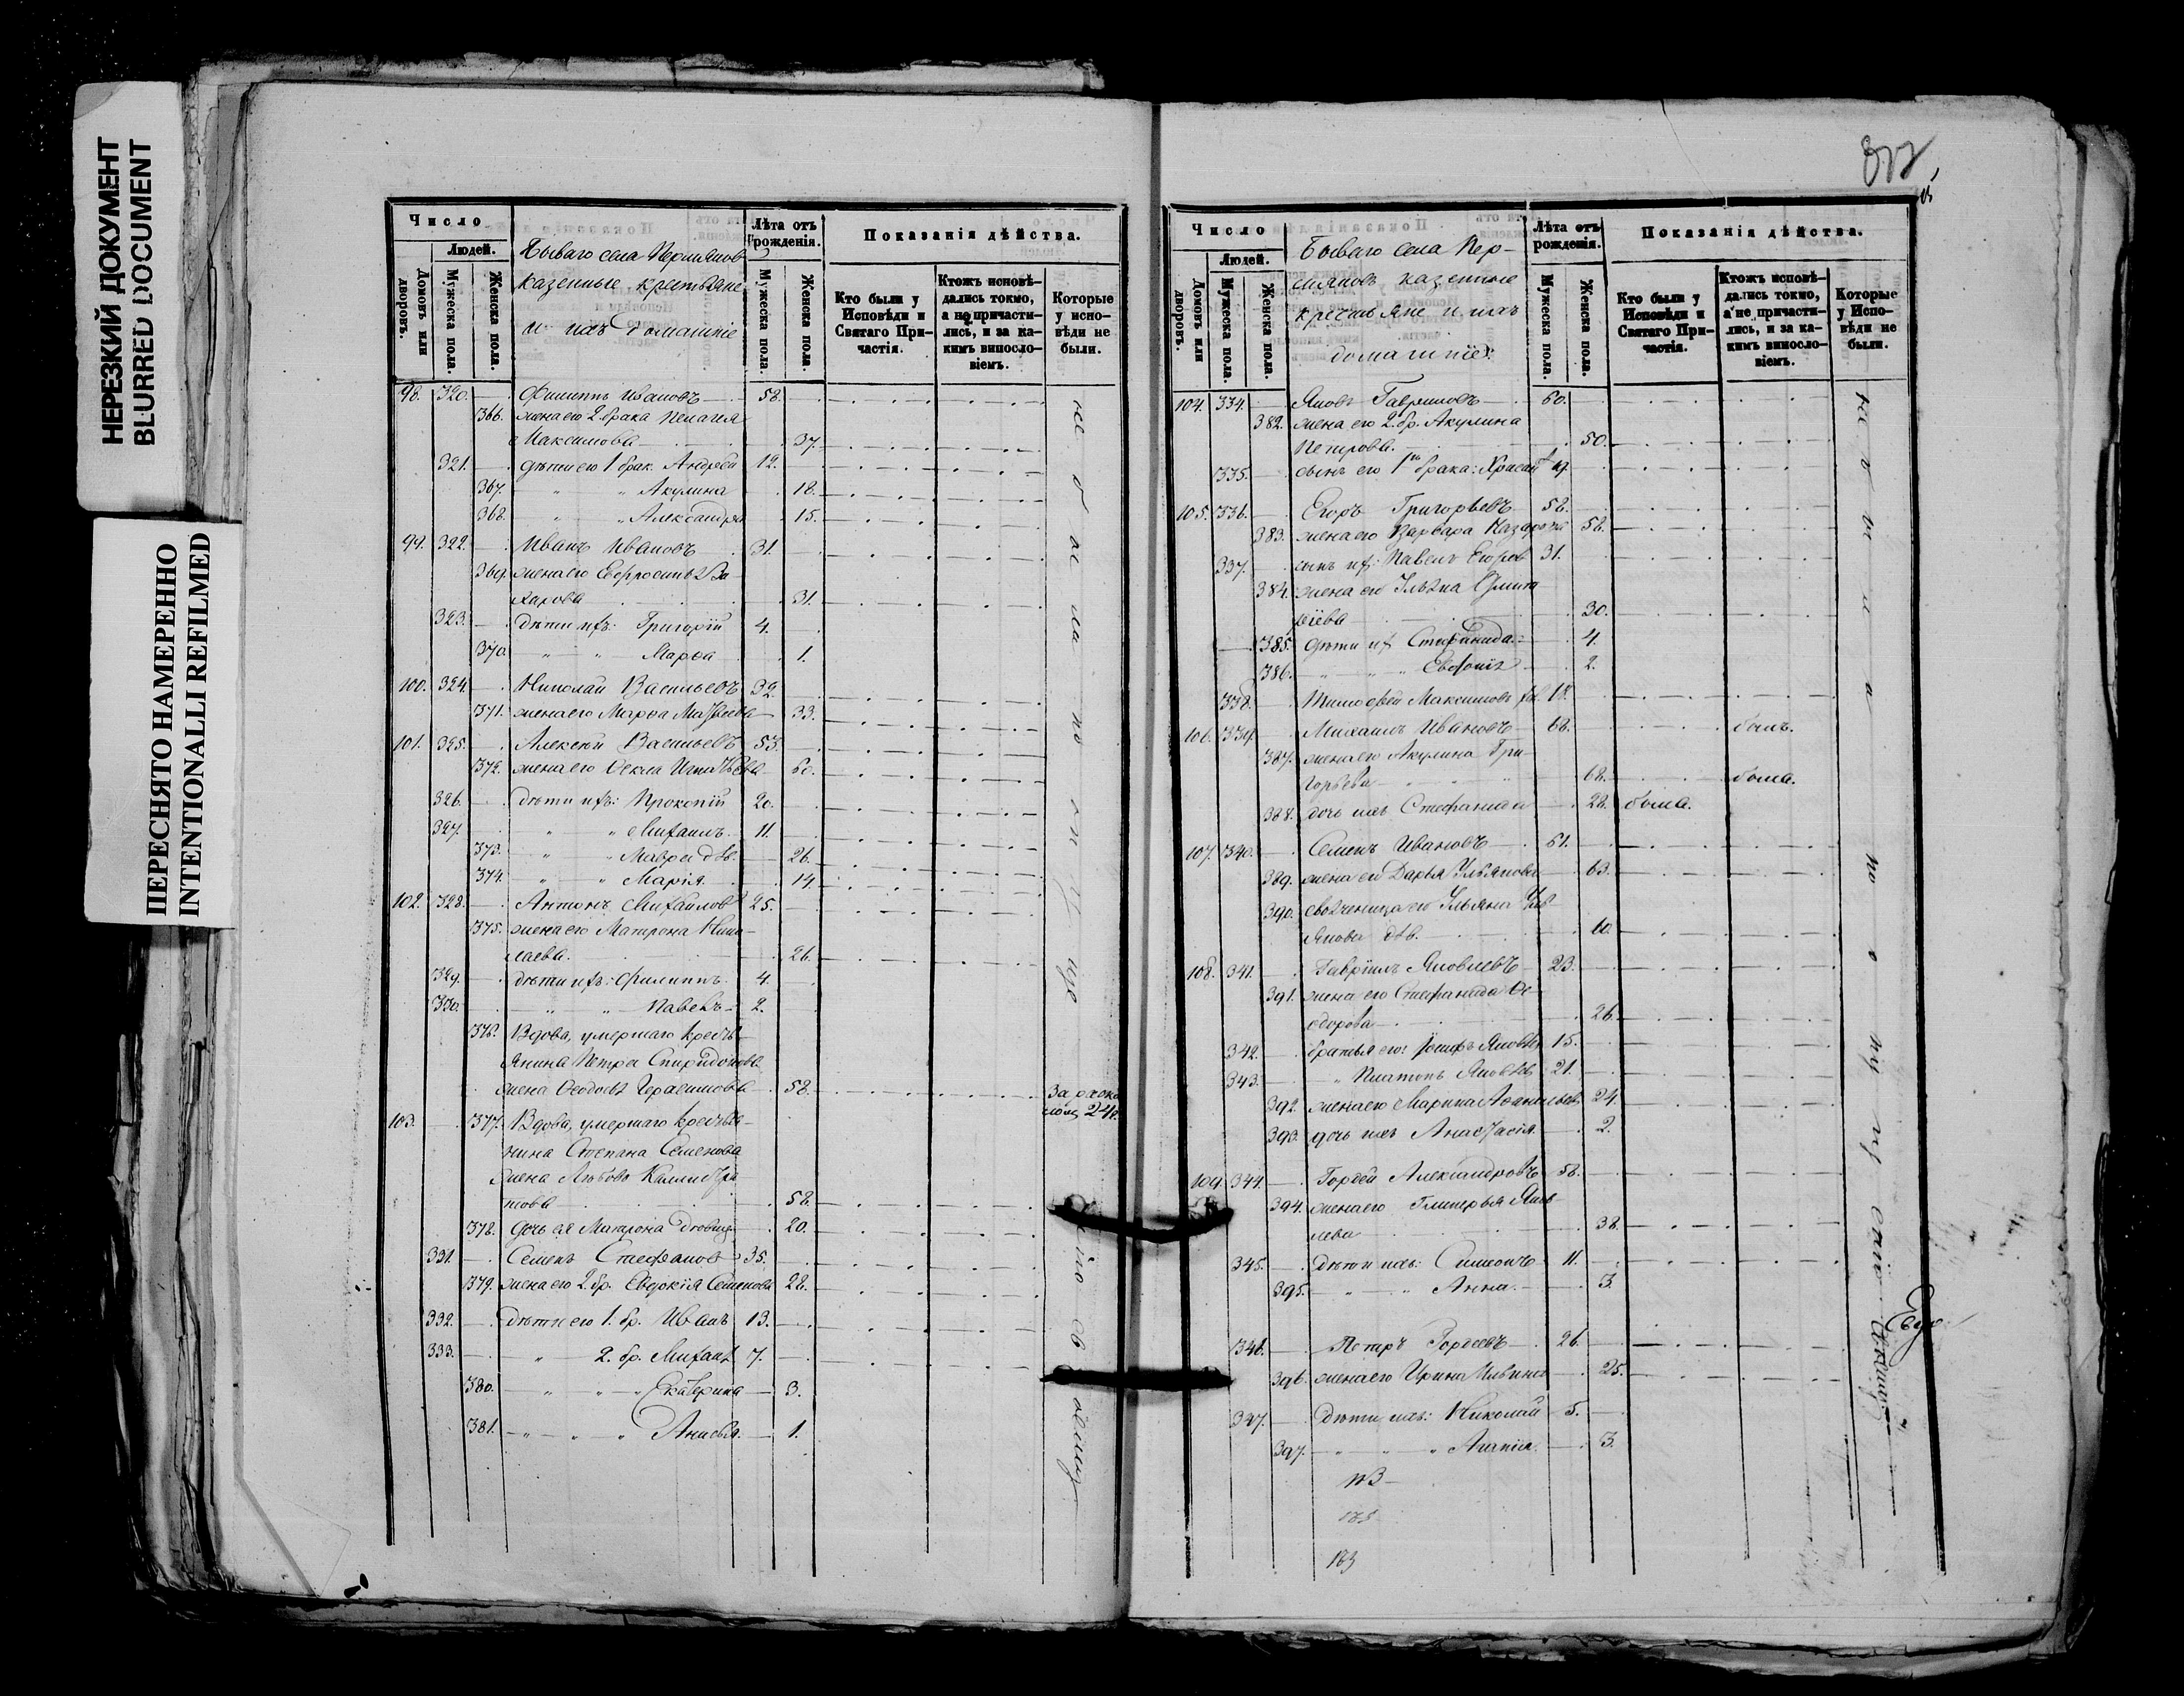 НЕРЕЗКИЙ ДОКУМЕНТ
BLURRED DOCUMENT
ПЕРЕСНЯТО НАМЕРЕННО
INTENTIONALLI REFILMED
Число
Людей.
Домовъ или дворовъ.
Мужеска пола.
Женска пола.
Бываго села
казенные крестьяне
и ихъ домашніе
Лѣта отъ рожденія.
Мужеска пола.
Женска пола.
Показанія дѣйства.
Кто были у Исповѣди и Святаго Причастія.
Ктожъ исповѣдались токмо, а не причастились, и за какимъ винословіемъ.
Которые у исповѣди не были.
98. 320. Филиппъ Ивановъ 58.
366. жена его 2. брака Пелагея
Максимова 37.
321. дѣти его 1 брак. Андрей 12.
367. " " Акулина 18.
368. " " Александра 15.
99. 322. Иванъ Ивановъ 31.
369. жена его Евфросинья За-
харова 31.
323. дѣти ихъ: Григорій 4.
370. " " Марѳа 1.
100. 324. Николай Васильевъ 32.
371. жена его Марѳа Матвѣева 33.
101. 325. Алексѣй Васильевъ 53.
372. жена его Ѳекла Игнатьева 60.
326. дѣти ихъ: Прокопій 20.
327. " " Михаилъ. 11.
373. " " Мавра дѣв. 26.
374. " " Марія. 14.
102. 328. Антонъ Михаиловъ 25.
375. жена его Матрона Нико-
лаева. 26.
329. дѣти ихъ: Филиппъ. 4.
330. " " Павелъ 2.
376. Вдова, умершаго кресть-
янина Петра Спиридонова
жена Ѳеодосья Герасимова 58.
103. 377. Вдова, умершаго крестья-
нина Стефана Семенова
жена Любовь Каллистра-
това 58.
378. Дочь ея Матрона дѣвица 20.
331. Семенъ Стефановъ 35.
379. жена его 2 бр. Евдокія Семенова 28.
332. дѣти его 1. бр. Иванъ 13.
333. " 2. бр. Михаилъ 7.
380. " " " Екатерина 3.
381. " " " Анисья. 1.
Число
Людей.
Домовъ или дворовъ.
Мужеска пола.
Женска пола.
Бываго села Пер-
казенные
крестьяне и ихъ
домашніе:
Лѣта отъ рожденія.
Мужеска пола.
Женска пола.
Показанія дѣйства.
Кто были у Исповѣди и Святаго Причастія.
Ктожъ исповѣдались токмо, а не причастились, и за какимъ винословіемъ.
Которые у Исповѣди не были.
104. 334. Яковъ Гавриловъ 60.
382. жена его 2. бр. Акулина
Петрова. 50.
335. сынъ его 1 брака:
105. 336. Егоръ Григорьевъ 58.
383. жена его Варвара Назарова 58.
337. сынъ ихъ: Павелъ Егоровъ 31.
384. жена его
30.
385. дѣти ихъ Стефанида 4.
386. " " " 2.
338. Тимофей Максимовъ 18.
106. 339. Михаилъ Ивановъ 68. былъ.
387. жена его Акулина Гри-
горьева 68. была.
388. дочь ихъ Стефанида 28. была.
107. 340. Семенъ Ивановъ 61.
389. жена его Дарья Ульянова 63.
390. его Ульяна
дѣв.
108. 341. Гавріилъ Яковлевъ 23.
391. жена его Стефанида Ѳе-
одорова 26.
342. братья его: Іосифъ 15.
343. " Платонъ 21.
392. жена его Марина 24.
393. дочь ихъ Анастасія 2.
109. 344. Гордей Александровъ 58.
394. жена его Гликерья Яков-
лева 38.
345. дѣти ихъ: Симеонъ 11.
395. " " Анна. 3.
346. Петръ Гордеевъ 26.
396. жена его Ирина 25.
347. дѣти ихъ: Николай 5.
397. " " " Агапія. 3.